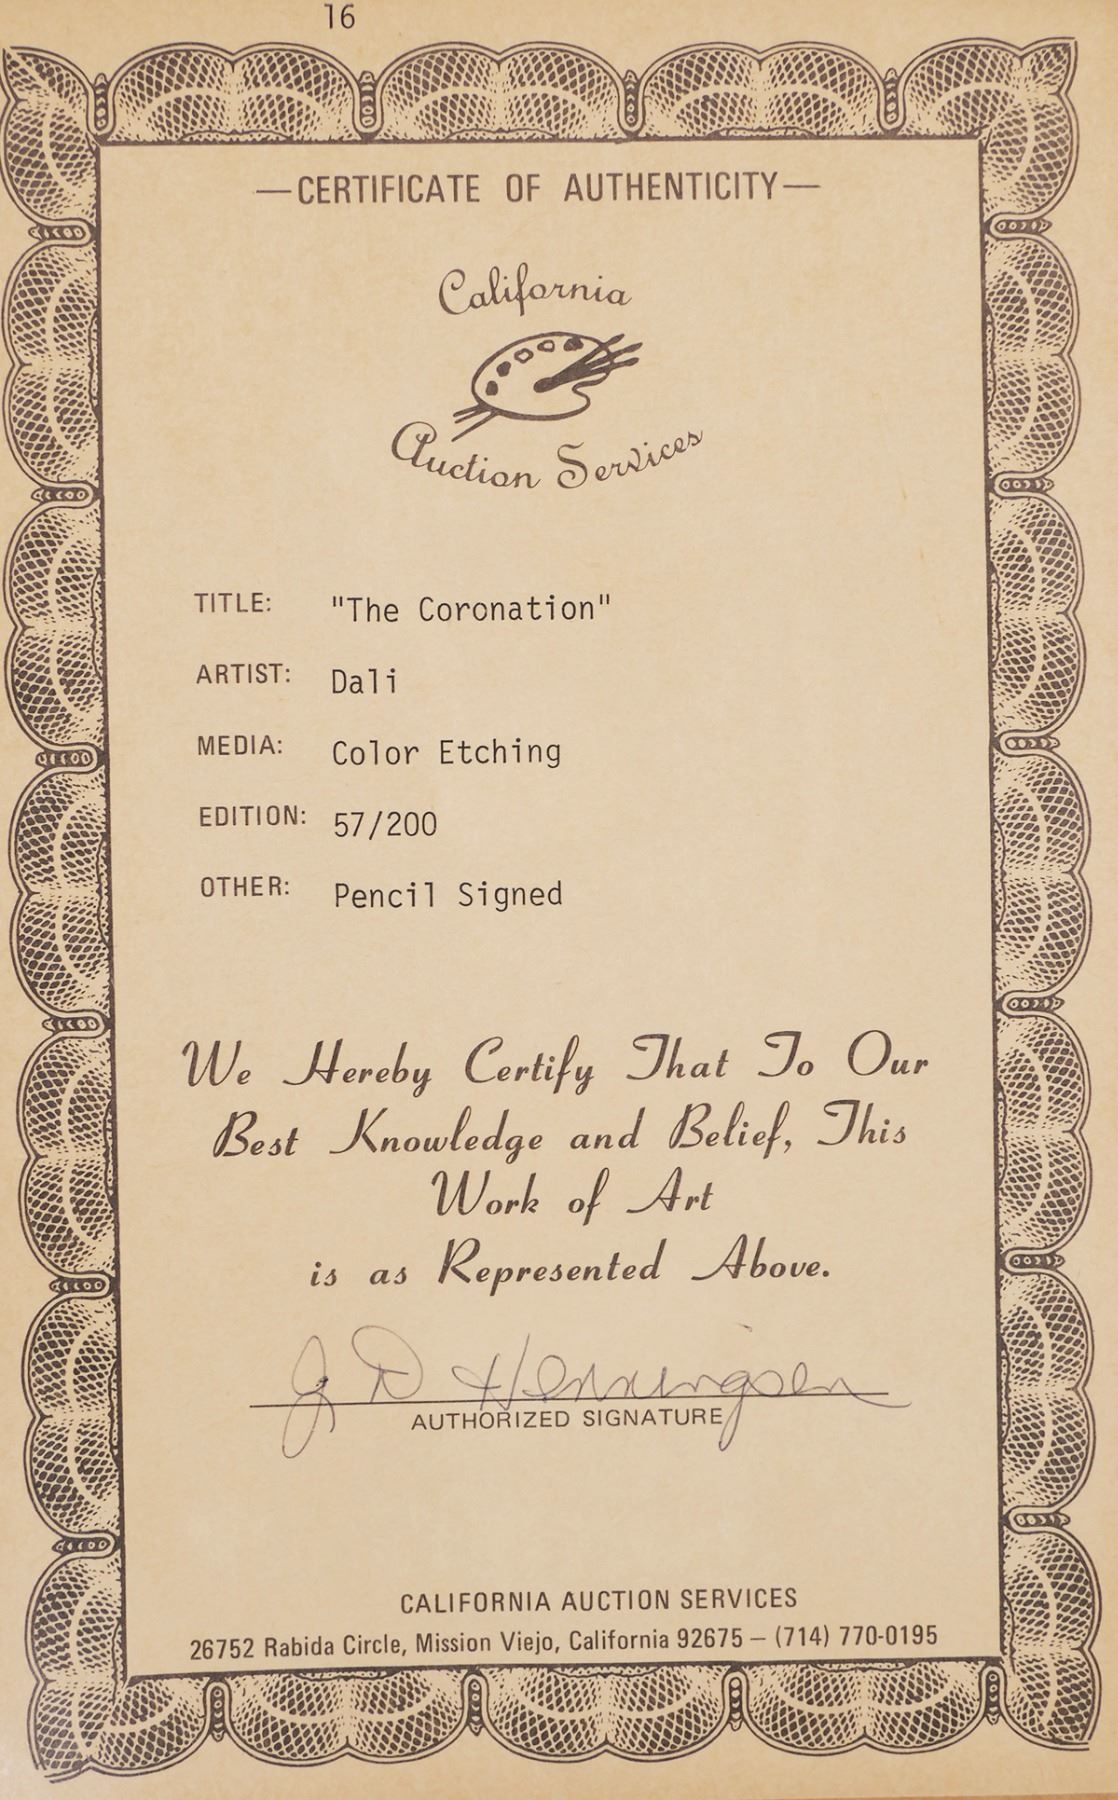 16
—CERTIFICATE OF AUTHENTICITY—
California
Auction Services
TITLE: "The Coronation"
ARTIST: Dali
MEDIA: Color Etching
EDITION: 57/200
OTHER: Pencil Signed
We Hereby Certify That To Our
Best Knowledge and Belief, This
Work of Art
is as Represented Above.
J D Henningsen
AUTHORIZED SIGNATURE
CALIFORNIA AUCTION SERVICES
26752 Rabida Circle, Mission Viejo, California 92675 — (714) 770-0195